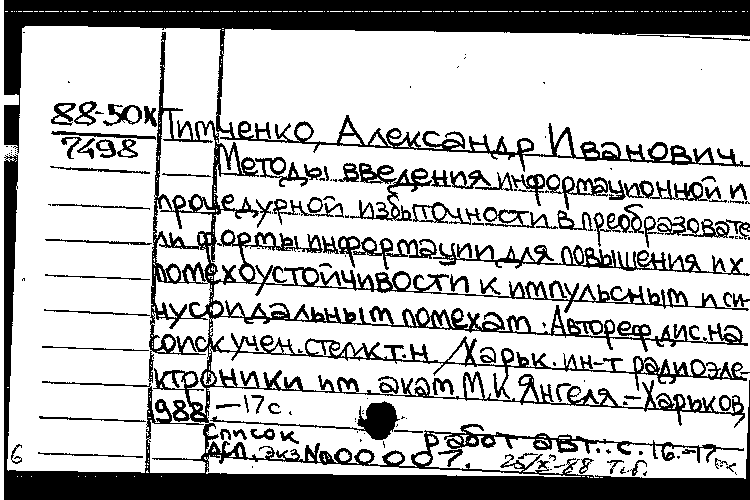 88-50К Тимченко, Александр Иванович.
7498
Методы введения информационной и
процедурной избыточности в преобразовате
ли формы информации для повышения их
помехоустойчивости к импульсным и си-
нусоидальным помехам. Автореф. дис. на
соиск. учен. степ. к.т.н. /Харьк. ин-т радиоэле-
ктроники им. акад. М.К. Янгеля. – Харьков,
1988. – 17 с.
Список работ авт.: с. 16. – 17
ДСП. Экз № 00007. 25/X-88
6